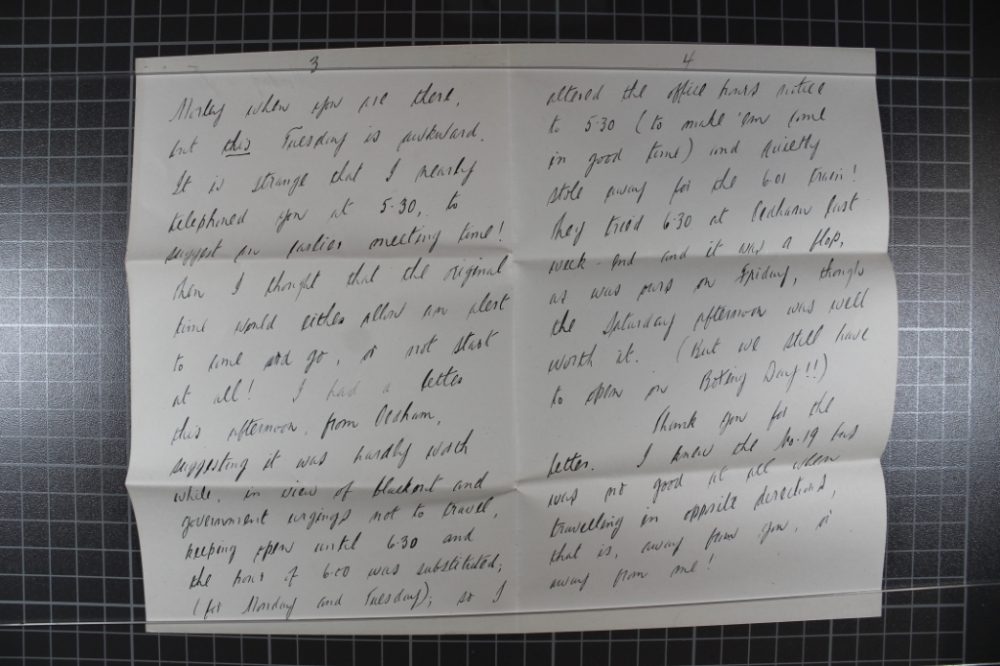 3
Morley when you are there,
but this Tuesday is awkward.
It is strange that I nearly
telephoned you at 5-30, to
suggest an earlier meeting time!
Then I thought that the original
time would either allow an alert
to come and go, or not start
at all! I had a letter
this afternoon, from Oldham,
suggesting it was hardly worth
while, in view of blackout and
government urgings not to travel,
keeping open until 6.30 and
the hour of 6.00 was substituted;
(for Monday and Tuesday); so I
4
altered the office hours notice
to 5-30 (to make 'em come
in good time) and quietly
stole away for the 6.01 train!
They tried 6-30 at Oldham last
week-end and it was a flop,
as was ours on Friday, though
the Saturday afternoon was well
worth it. (But we still have
to open on Boxing Day!!)
Thank you for the
letter. I knew the No. 19 bus
was no good at all when
travelling in opposite directions,
that is, away from you, or
away from me!